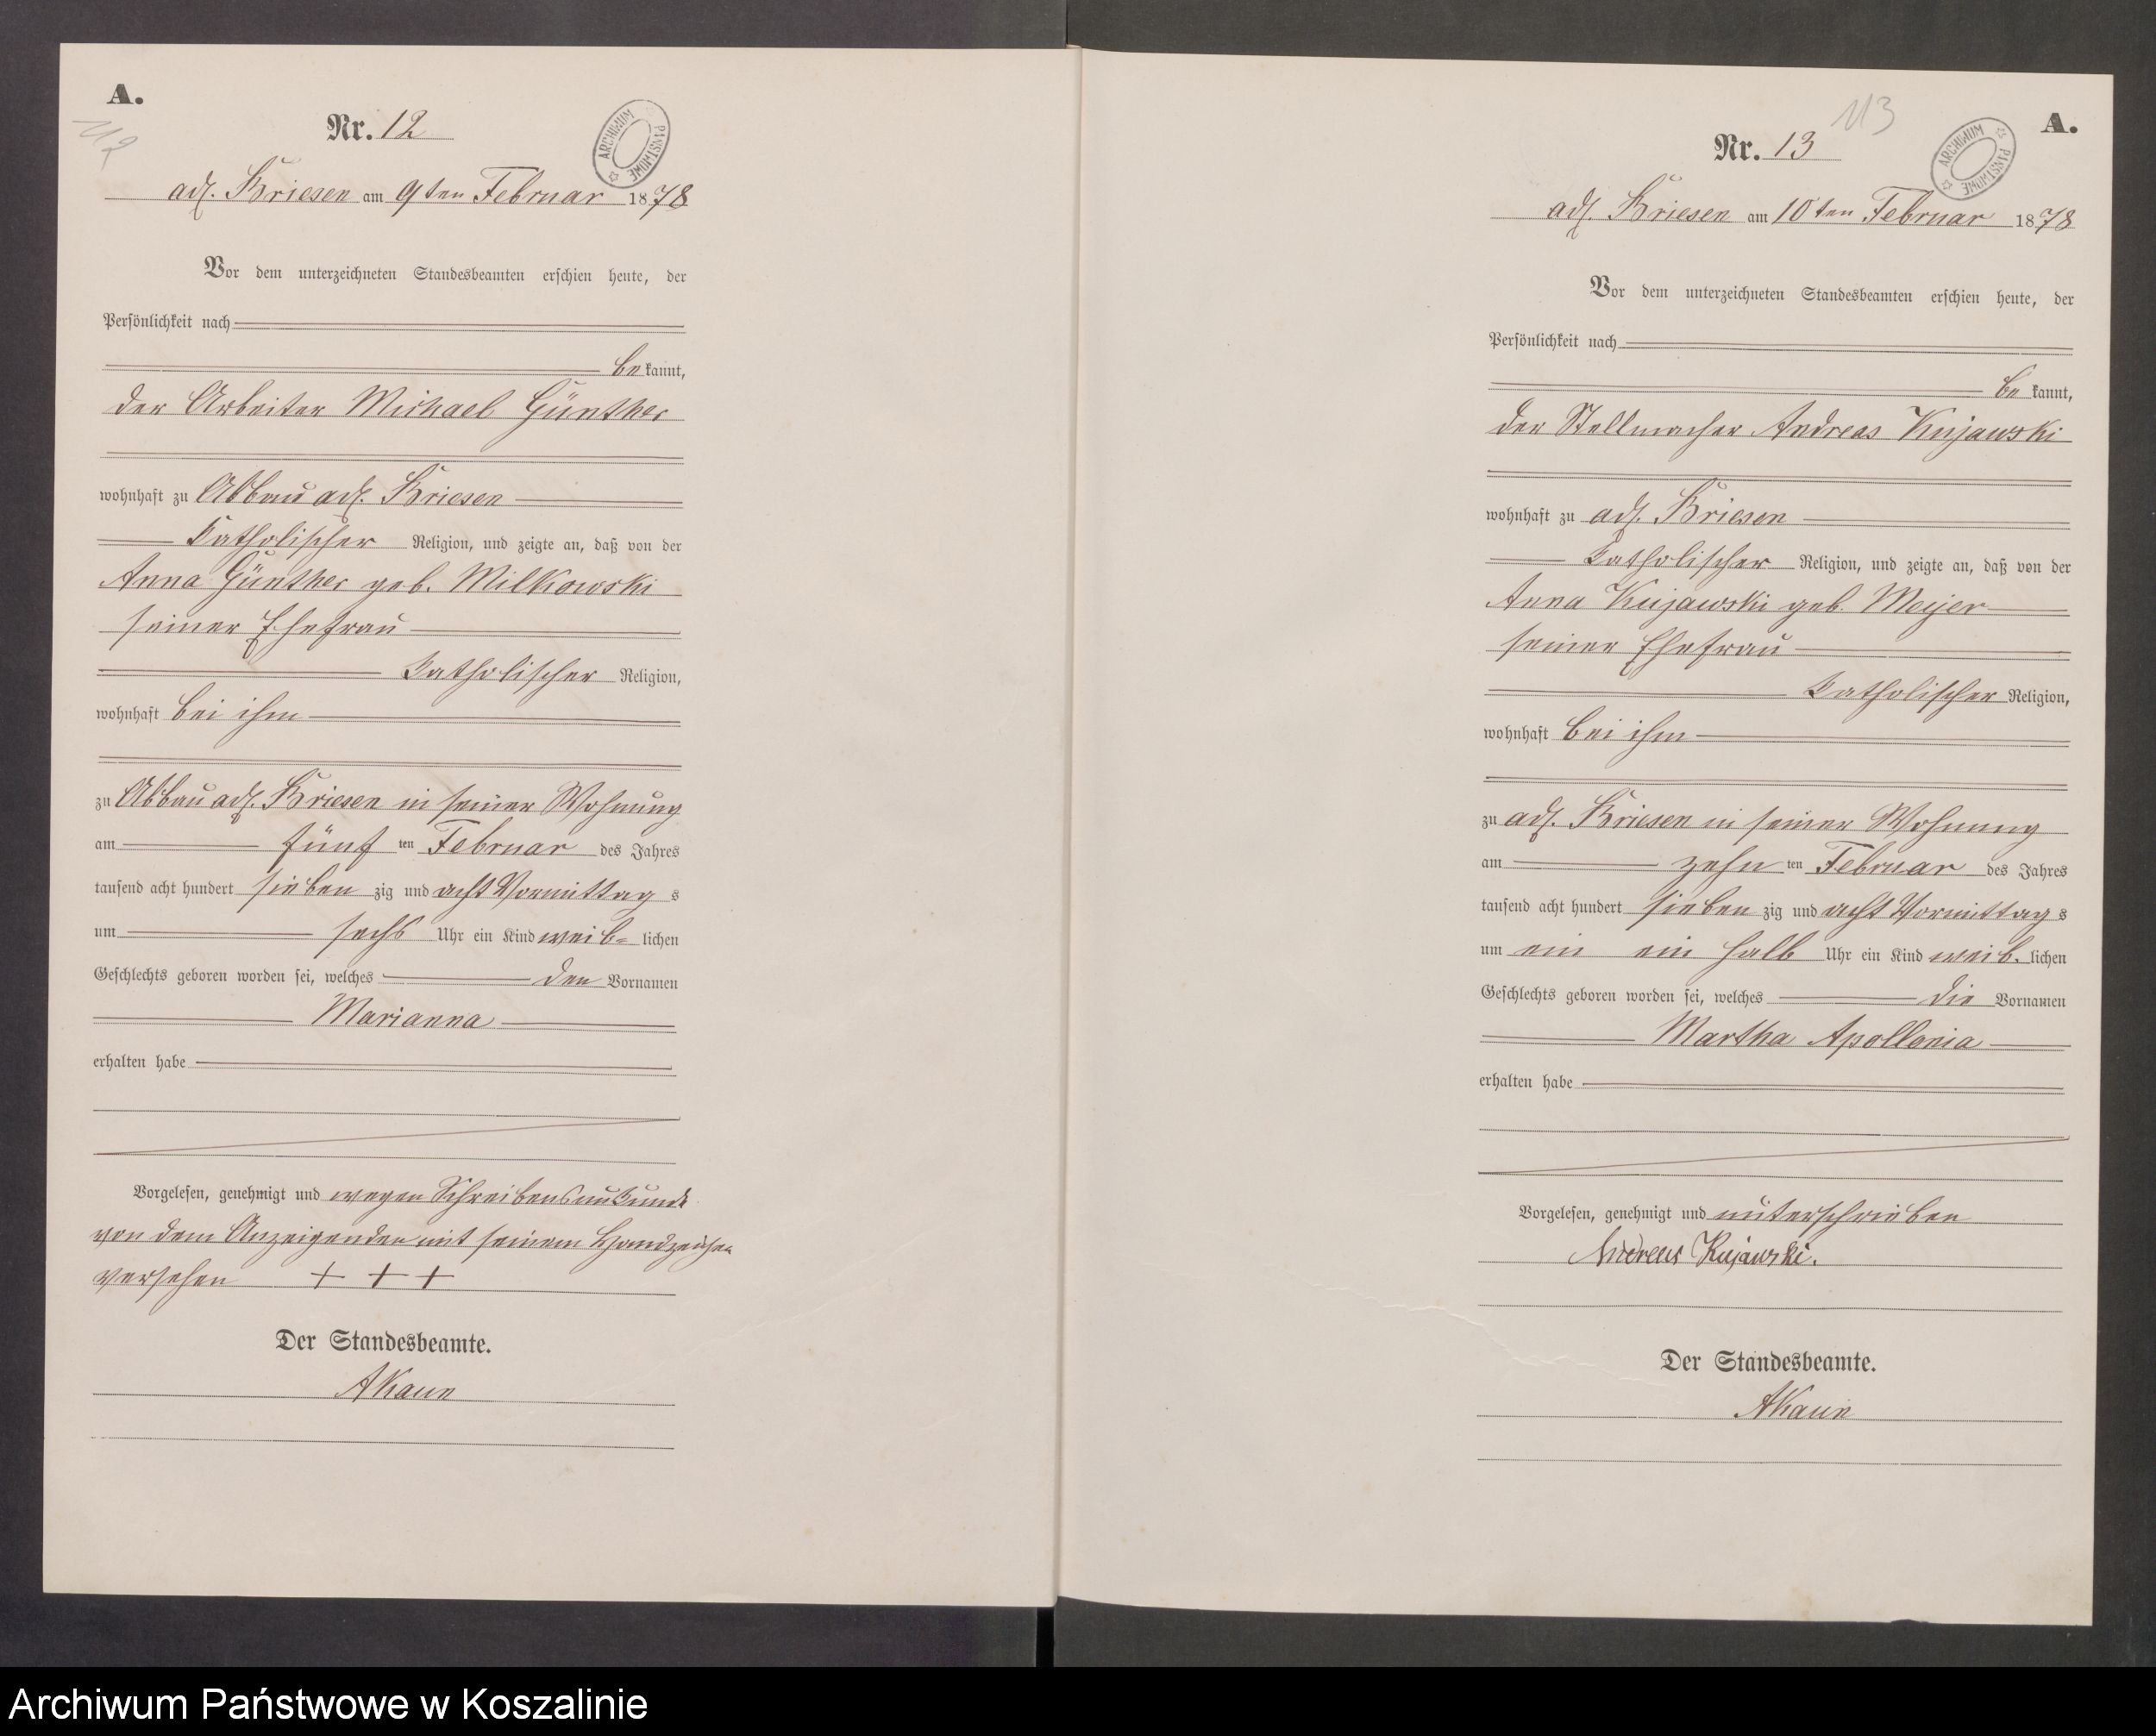 A.
112
Nr. 12
ARCHIWUM PAŃSTWOWE
adl. Briesen am 9ten Februar 1878
Vor dem unterzeichneten Standesbeamten erschien heute, der
Persönlichkeit nach
be kannt,
der Arbeiter Michael Günther
wohnhaft zu Abbau adl. Briesen
katholischer Religion, und zeigte an, daß von der
Anna Günther geb. Milkowski
seiner Ehefrau
katholischer Religion,
wohnhaft bei ihm
zu Abbau adl. Briesen in seiner Wohnung
am fünf ten Februar des Jahres
tausend acht hundert sieben zig und acht Vormittag s
um sechs Uhr ein Kind weib= lichen
Geschlechts geboren worden sei, welches den Vornamen
Marianna
erhalten habe
Vorgelesen, genehmigt und wegen Schreibensunkunde
von dem Anzeigenden mit seinem Handzeichen
versehen + + +
Der Standesbeamte.
AKaun
113
A.
Nr. 13
ARCHIWUM PAŃSTWOWE
adl. Briesen am 10ten Februar 1878
Vor dem unterzeichneten Standesbeamten erschien heute, der
Persönlichkeit nach
be kannt,
der Stellmacher Andreas Kujawski
wohnhaft zu adl. Briesen
katholischer Religion, und zeigte an, daß von der
Anna Kujawski geb. Meyer
seiner Ehefrau
katholischer Religion,
wohnhaft bei ihm
zu adl. Briesen in seiner Wohnung
am zehn ten Februar des Jahres
tausend acht hundert sieben zig und acht Vormittag s
um ein ein halb Uhr ein Kind weib. lichen
Geschlechts geboren worden sei, welches die Vornamen
Martha Apollonia
erhalten habe
Vorgelesen, genehmigt und unterschrieben
Andreas Kujawski.
Der Standesbeamte.
AKaun
Archiwum Państwowe w Koszalinie